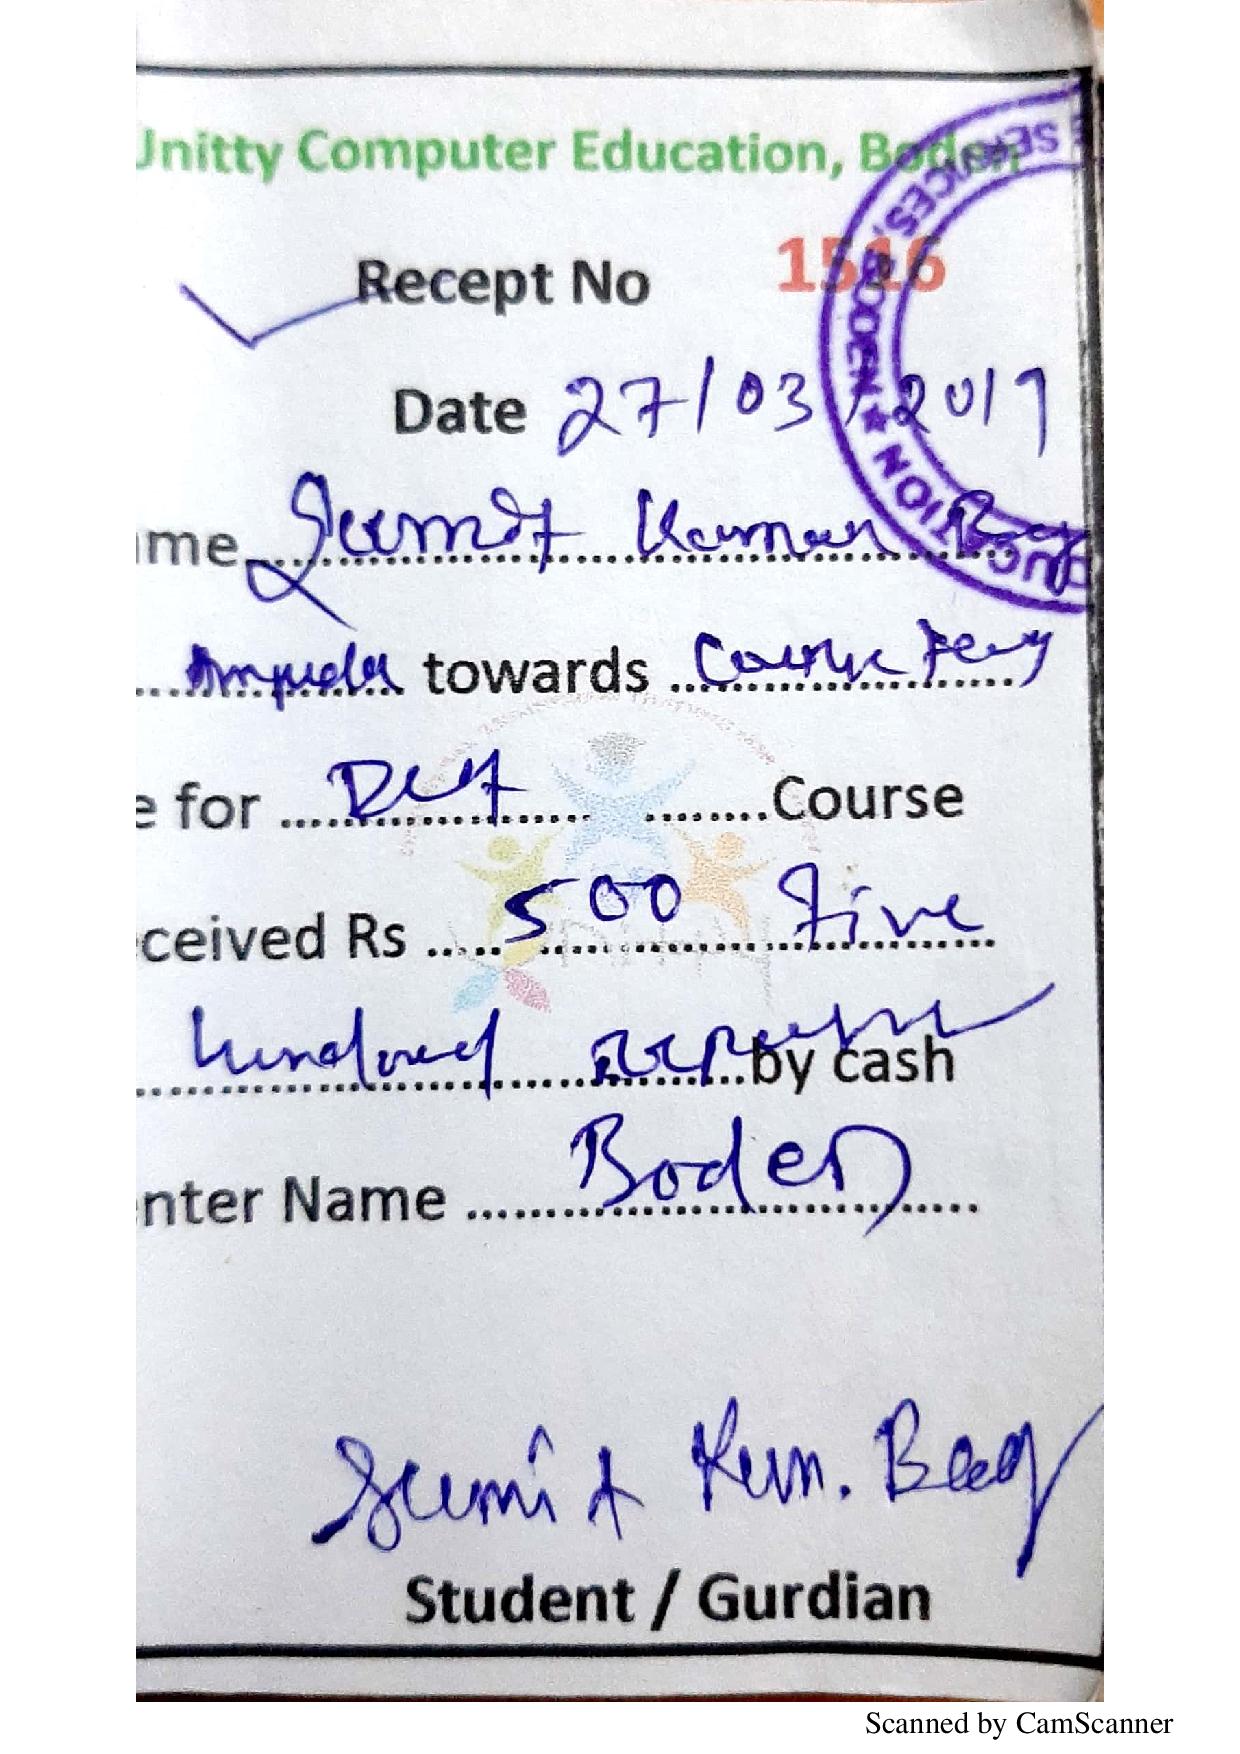 Unitty Computer Education, Boden
Recept No 1516
Date 27/03/2019
me Sumit Kumar Bag
towards Course Fees
e for DCA Course
ceived Rs 500 Five
hundred rupees by cash
nter Name Boden
Sumit Kum. Bag
Student / Gurdian
SERVICES, BODEN ★
UCATION
Scanned by CamScanner